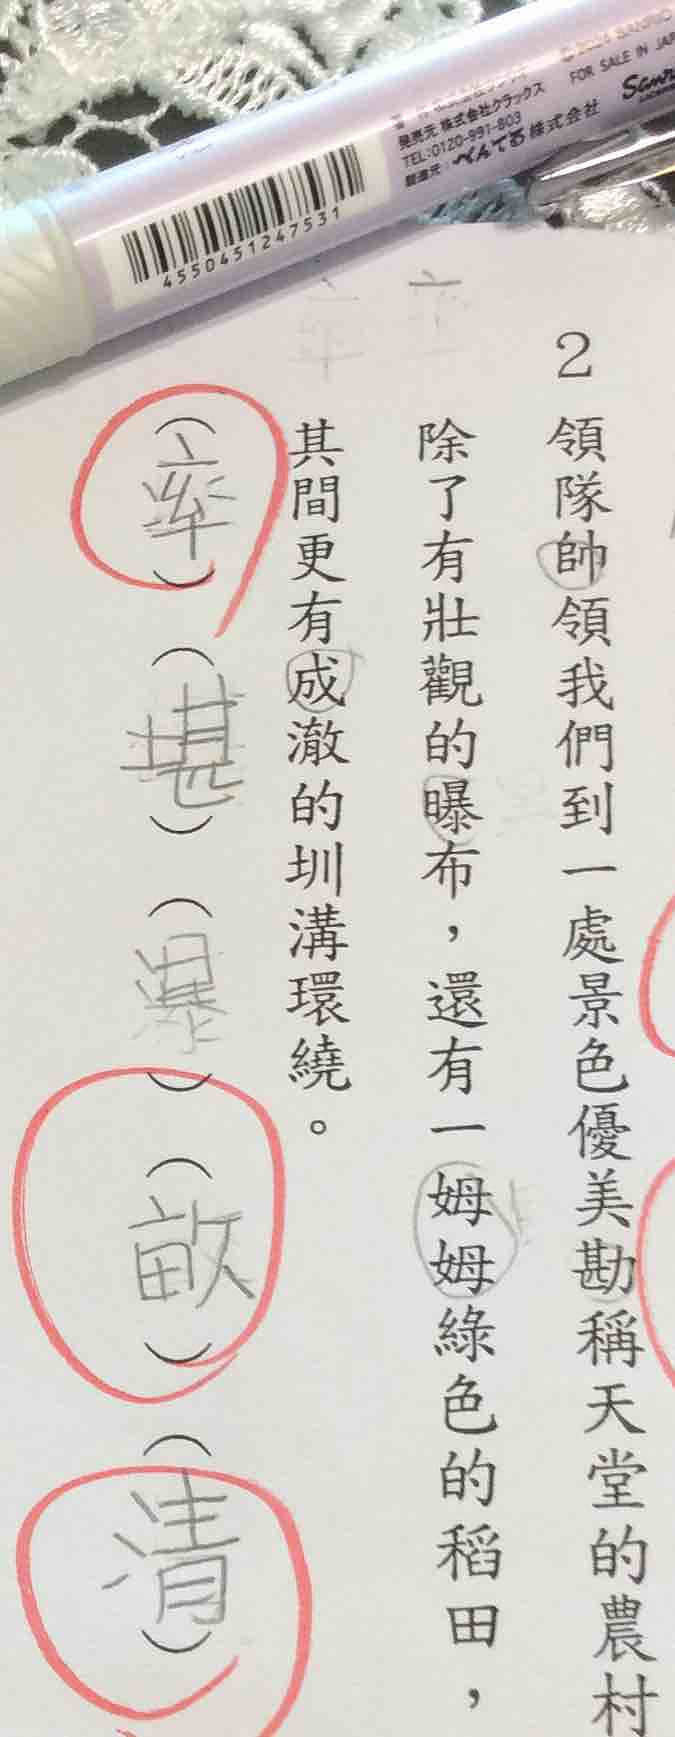 発売元 株式会社クラックス
TEL:0120-991-803
製造元:ぺんてる株式会社
FOR SALE IN JAP
Sanri
4550451247531
2
領隊帥領我們到一處景色優美勘稱天堂的農村
除了有壯觀的曝布,還有一姆姆綠色的稻田,
其間更有成澈的圳溝環繞。
(率)(堪)(瀑)(畝)(清)